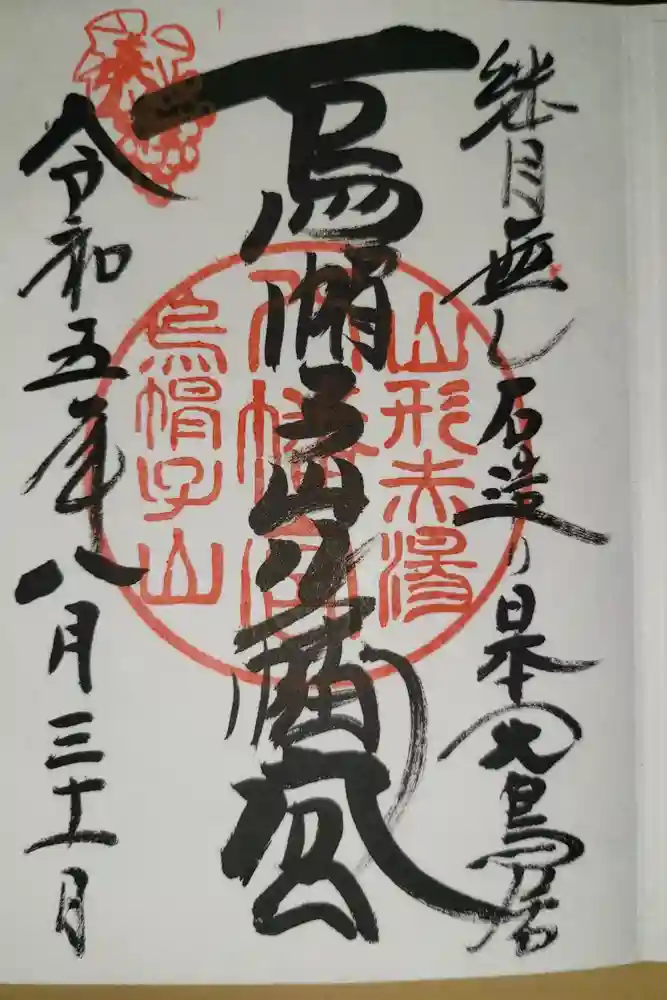 継目無し石造り日本一の大鳥居
烏帽子山八幡宮
令和五年八月三十一日
山形赤湯
八幡宮
烏帽子山